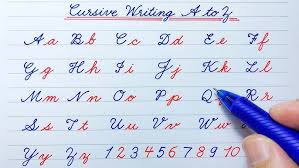 Cursive Writing A to Z
A a B b C c D d E e F f
G g H h I i J j K k L l
M m N n O o P p Q R r
S s T t U u V v W w
Y y Z z 1 2 3 4 5 6 7 8 9 10